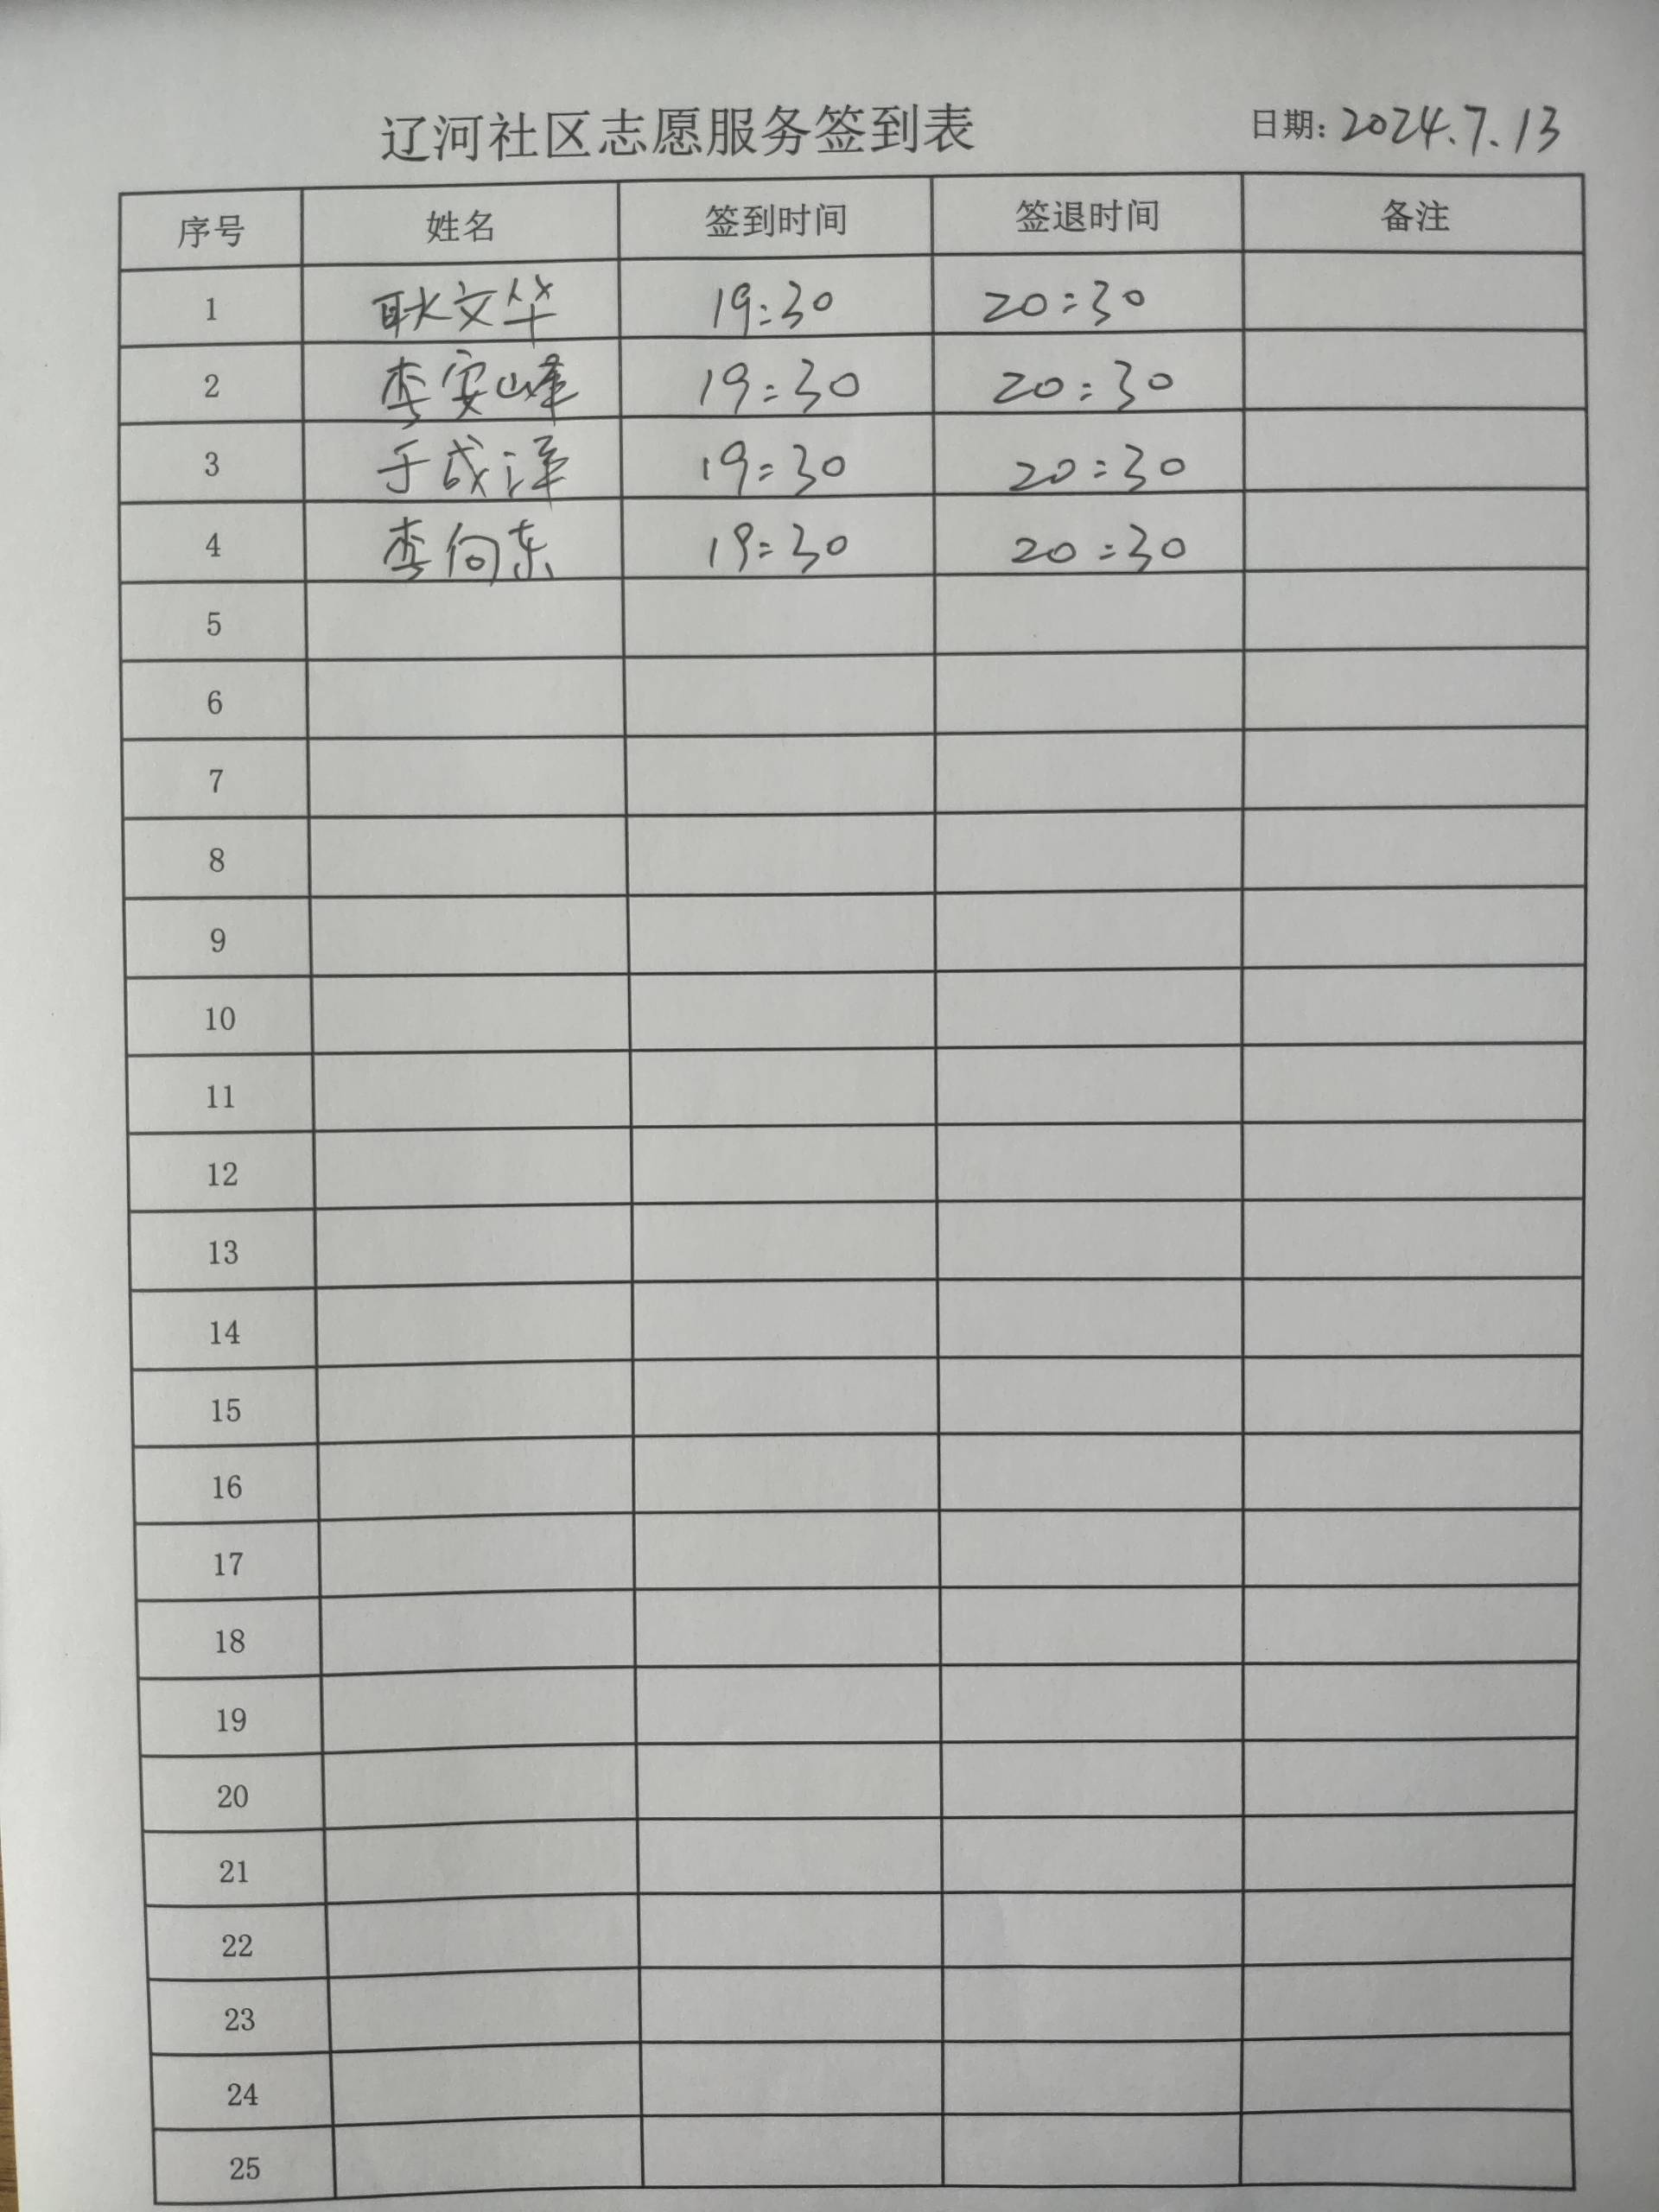 辽河社区志愿服务签到表 日期：2024.7.13
序号 姓名 签到时间 签退时间 备注
1 耿文华 19:30 20:30
2 李安峰 19:30 20:30
3 于成泽 19:30 20:30
4 李向东 19:30 20:30
5
6
7
8
9
10
11
12
13
14
15
16
17
18
19
20
21
22
23
24
25